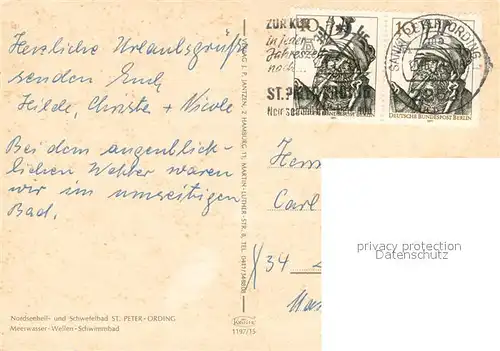 Herzliche Urlaubsgrüße
senden Euch
Heide, Christa + Nicole
Bei dem augenblick-
lichen Wetter waren
wir im umseitigen
Bad.
Nordseeheil- und Schwefelbad ST. PETER-ORDING
Meeswasser-Wellen-Schwimmbad
VERLAG J. P. JANTZEN, 2 HAMBURG 11, MARTIN-LUTHER-STR. 8, TEL. 0411/
1197/15
ZUR KUR
in jeder
Jahreszeit
nach
ST. PETER-ORDING
10
DEUTSCHE BUNDESPOST BERLIN
DEUTSCHE BUNDESPOST BERLIN
SANKT PETER-ORDING
Carl
34
privacy protection
oldthing.de